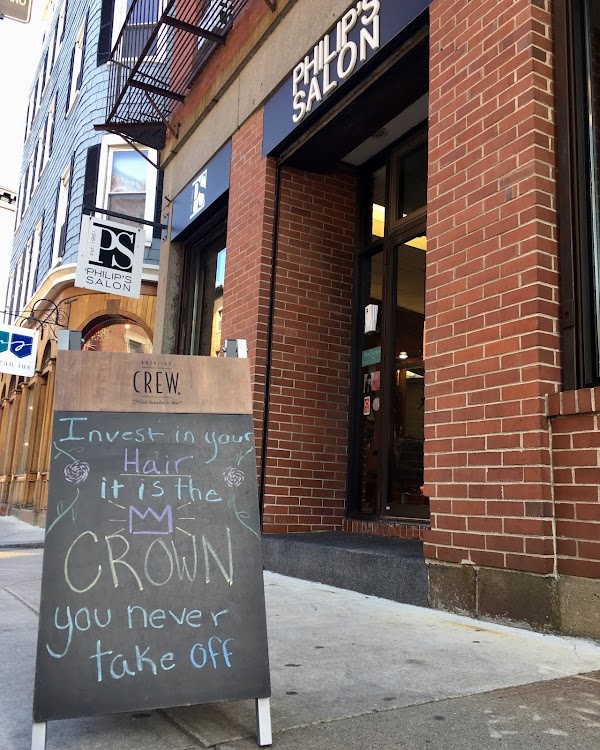 PHILIP'S
SALON
PS
EST. 1980
PS
PHILIP'S
SALON
AMERICAN
CREW
Official Supplier to Men
Invest in your
Hair
it is the
CROWN
you never
take off